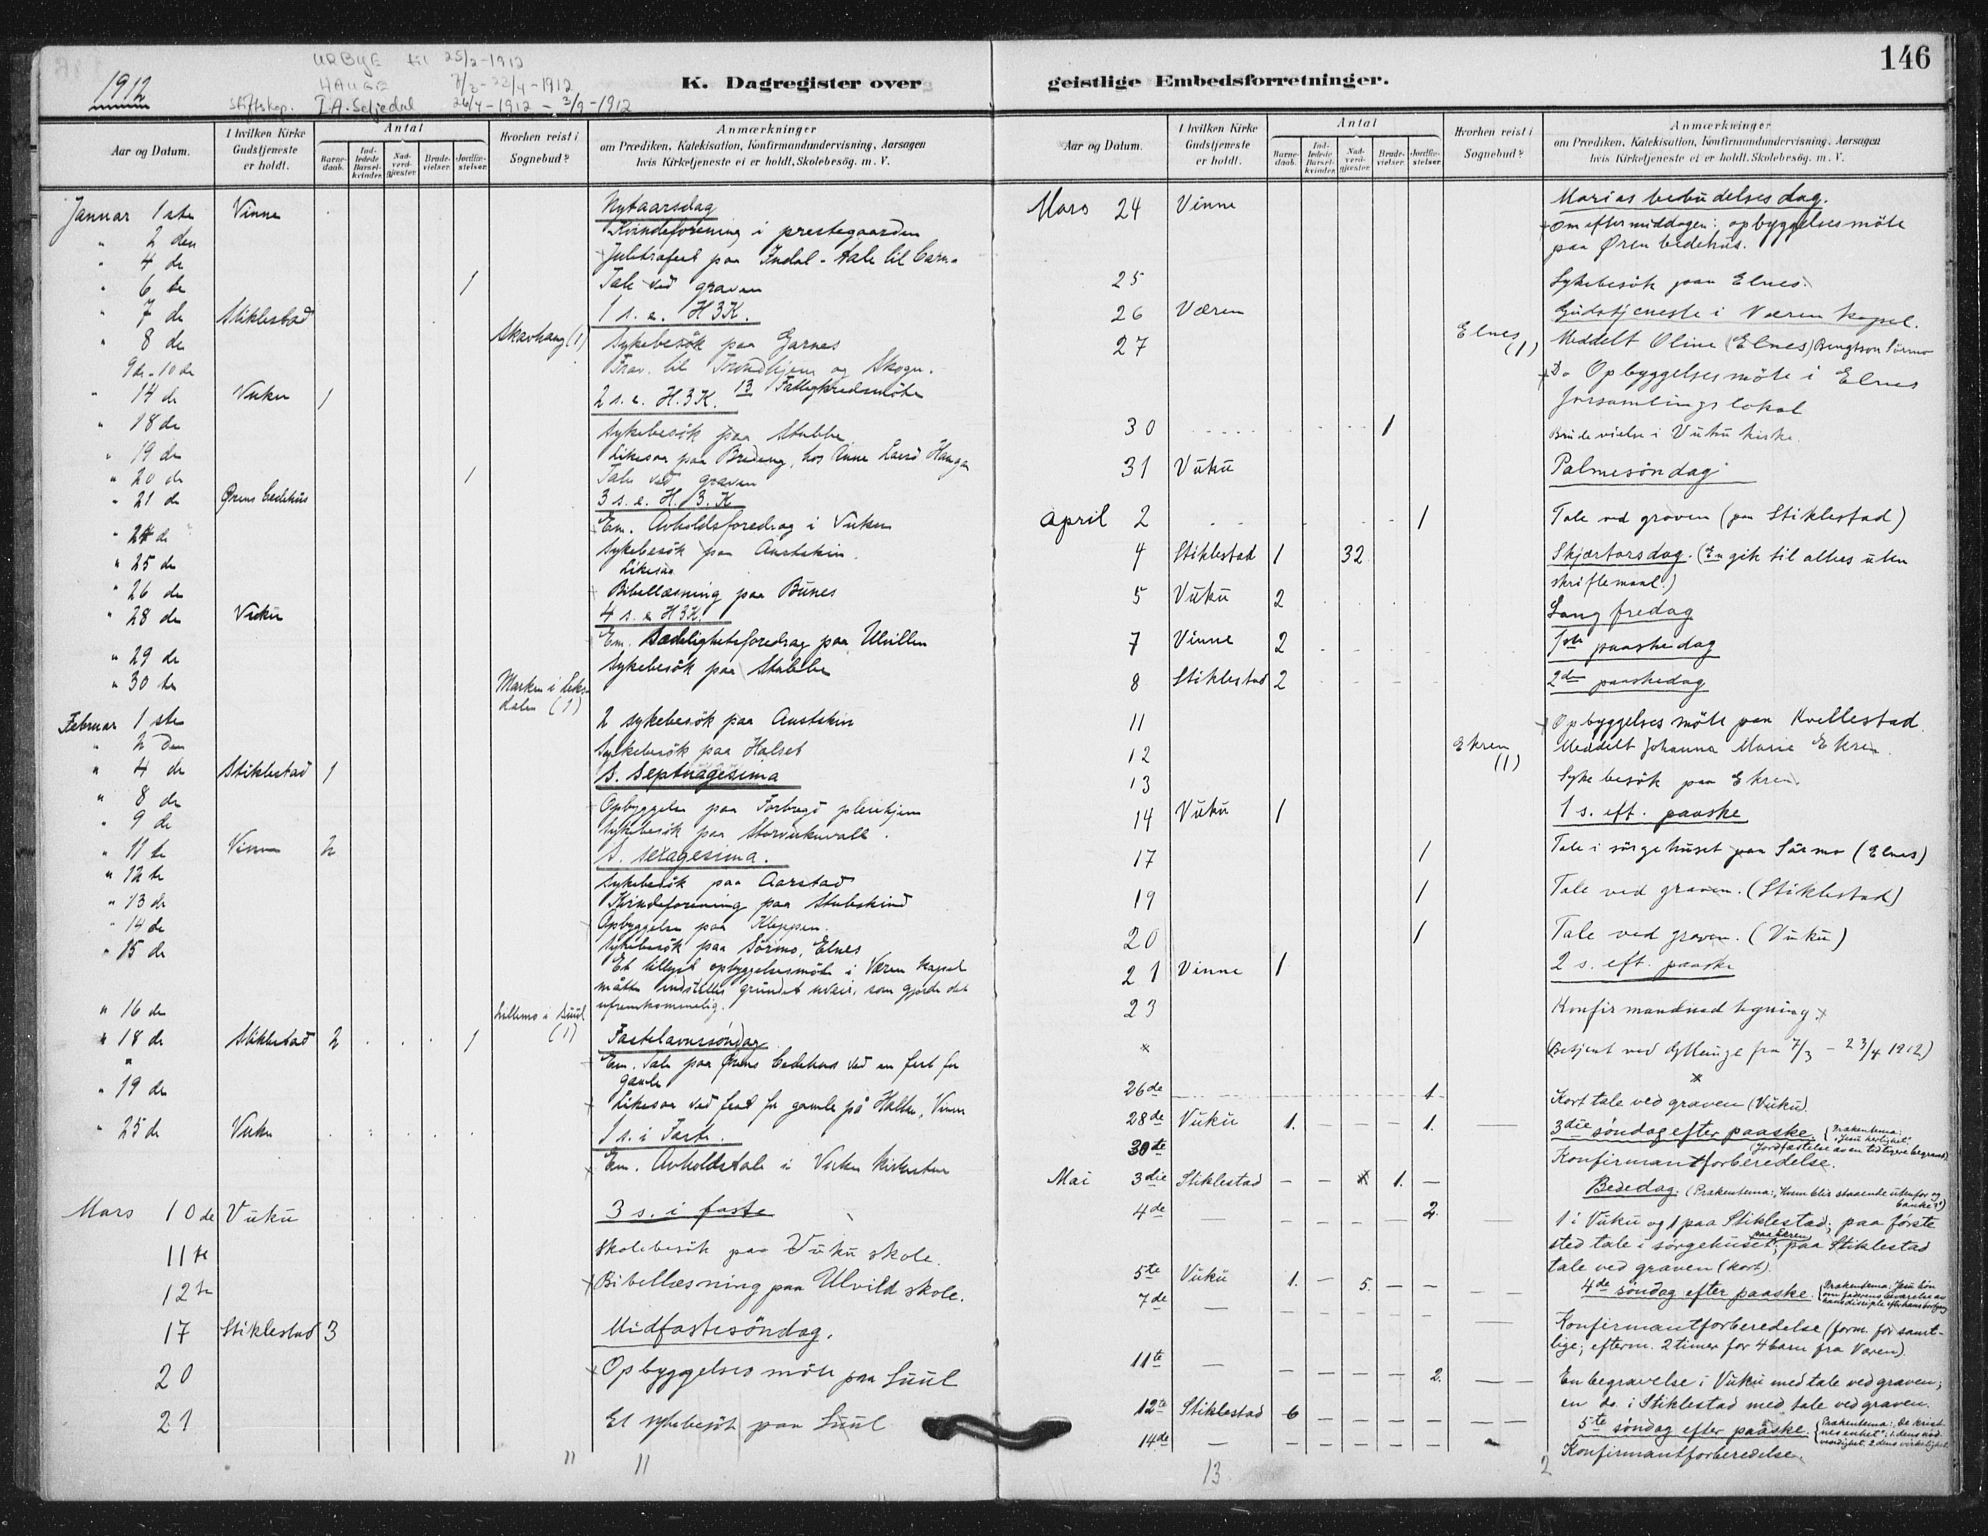 1912
URBYE til 25/2-1912
HAUGE 7/3-23/4-1912
Stiftskap. I.A. Seljedal 26/4-1912 - 3/9-1912
K. Dagregister over
Aar og Datum.
I hvilken Kirke Gudstjeneste er holdt.
Antal
Barnedaab.
Indledede Barselkvinder.
Nadverdgjæster.
Brudevielser.
Jordfæstelser.
Hvorhen reist i Sognebud?
Anmærkninger
om Prædiken, Katekisation, Konfirmandundervisning, Aarsagen
hvis Kirketjeneste ei er holdt, Skolebesög. m. V.
Januar 1 ste Vinne Nytaarsdag
" 2 den Kvindeforening i prestegaarden
" 4 de Juletræfest paa Indal - tale til barn.
" 6 te 1 Tale ved graven
" 7 de Stiklestad 1 s. e. H3K.
" 8 de Skavhaug (1) Sykebesök paa Garnes
9de-10 de Fravær. til Trondhjem og Skogn.
" 14 de Vuku 1 2 s. e. H.3K. 13 Fattigkredsmöte
" 18 de Sykebesök paa Stubbe
" 19 de Likesaa paa Breding, hos Anne Haugan
" 20 de 1 Tale ved graven
" 21 de Ørens bedehus 3 s. e. H. 3. K
Em. Avholdsforedrag i Vuku
" 24 de Sykebesök paa Austskin.
" 25 de Likesaa
" 26 de Bibellæsning paa Bunes
" 28 de Vuku 4 s. e H3K.
Em. Sædelighetsforedrag paa Ulvillen
" 29 de Sykebesök paa Stubbe
" 30 te Marken i Leksdalen (1)
Februar 1 ste 2 sykebesök paa Austskin
" 2 den Sykebesök paa Halset
" 4 de Stiklestad 1 S. septuagesima
" 8 de Opbyggelse paa Forbregd pleiehjem
" 9 de Sykebesök paa Storvukuvald.
" 11 te Vinne 2 S. sexagesima.
" 12 te Sykebesök paa Aarstad
" 13 de Kvindeforening paa Stubskind
" 14 de Opbyggelse paa Kleppen.
" 15 de Sykebesök paa Sörmo, Elnes
Et tillyst opbyggelsesmöte i Væren kapel
måtte indstilles grundet uveir, som gjorde det
ufremkommelig.
" 16 de Lillemo i Suul (1)
" 18 de Stiklestad 2 1 Fastelavnssöndag
" Em. Tale paa Ørens bedehus ved en fest for
gamle
" 19 de Likesaa ved fest for gamle på Halle, Vinne
" 25 de Vuku 1 s. i Faste.
Em. Avholdstale i Vuku kirkestue
Mars 10 de Vuku 3 s. i faste
11 te Skolebesök paa Vuku skole.
12 te Bibellæsning paa Ulvild skole.
17 Stiklestad 3 Midfastesöndag.
20 Opbyggelsesmöte paa Suul
21 Et sykebesök paa Suul
" 11
geistlige Embedsforretninger.
146
Aar og Datum.
I hvilken Kirke Gudstjeneste er holdt.
Antal
Barnedaab.
Indledede Barselkvinder.
Nadverdgjæster.
Brudevielser.
Jordfæstelser.
Hvorhen reist i Sognebud?
Anmærkninger
om Prædiken, Katekisation, Konfirmandundervisning, Aarsagen
hvis Kirketjeneste ei er holdt, Skolebesög. m. V.
Mars 24 Vinne Marias bebudelsesdag.
Om eftermiddagen: opbyggelsesmöte
paa Øren bedehus.
25 Sykebesök paa Elnes.
26 Væren Gudstjeneste i Væren kapel.
27 Elnes (1) Meddelt Oline (Elnes) Bengtson Sörmo
Do Opbyggelsesmöte i Elnes
forsamlingslokal
30 1 Brudevielse i Vuku kirke.
31 Vuku Palmesöndag
April 2 1 Tale ved graven (paa Stiklestad)
4 Stiklestad 1 32 Skjærtorsdag. (En gik til alters uten
skriftemaal.)
5 Vuku 2 Langfredag
7 Vinne 2 1ste paaskedag
8 Stiklestad 2 2den paaskedag
11 Opbyggelsesmöte paa Kvellestad.
12 Ekren (1) Meddelt Johanna Marie Ekren.
13 Sykebesök paa Ekren.
14 Vuku 1 1 s. eft. paaske
17 1 Tale i sörgehuset paa Sörmo (Elnes)
19 1 Tale ved graven. (Stiklestad)
20 1 Tale ved graven. (Vuku)
21 Vinne 1 2 s. eft. paaske
23 Konfirmandindtegning.
(Betjent ved Hauge fra 7/3 - 23/4 1912)
26de 1. Kort tale ved graven (Vuku).
28de Vuku 1. 1. 3die söndag efter paaske. {Prækentema: „Jesu herlighet“
(Jordfæstelse av en tidligere begravet)
30te Konfirmantforberedelse.
Mai 3die Stiklestad — — 1. — Bededag. (Prækentema: „Kun blir staaende utenfor og banke“!)
4de — — — — 2. 1 i Vuku og 1 paa Stiklestad; paa förste
sted tale i sørgehuset paa Ekren; paa Stiklestad
tale ved graven (kort)
5te Vuku 1. — 5. — — 4de söndag efter paaske. {Prækentema: Jesu bön
om faderens bevarelse av
hans disciple efter hans bortgang
7de — Konfirmantforberedelse (form. for samt-
lige; efterm. 2 timer for 4 barn fra Væren)
11te — 2. En begravelse i Vuku med tale ved graven;
en do. i Stiklestad med tale ved graven.
12te Stiklestad 6 5te söndag efter paaske. {Prækentema: „De krist-
nes enhet“: 1. dens nöd-
vendighet 2. dens virkelighet.
14de — Konfirmantforberedelse.
13 2